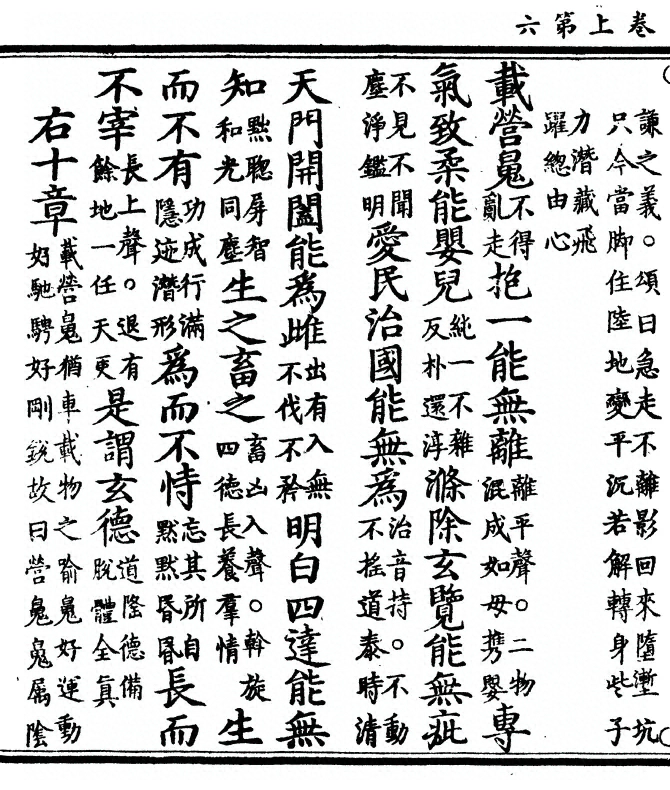 卷上第六
謙之義。頌曰急走不離影回來墮塹坑
只今當脚住陸地變平沉若解轉身些子
力潛藏飛
躍總由心
載營䰟不得亂走抱一能無離離平聲。二物混成如母携嬰專
氣致柔能嬰兒純一不雜反朴還淳滌除玄覽能無疵
不見不聞塵淨鑑明愛民治國能無為治音持。不動不搖道泰時清
天門開闔能為雌出有入無不伐不矜明白四達能無
知黜聰屏智和光同塵生之畜之畜凶入聲。斡旋四德長養羣情生
而不有功成行滿隱迹潛形為而不恃忘其所自默默昏昏長而
不宰長上聲。退有餘地一任天更是謂玄德道隆德備脫體全真
右十章載營䰟猶車載物之喻䰟好運動好馳騁好剛銳故曰營䰟䰟属陰